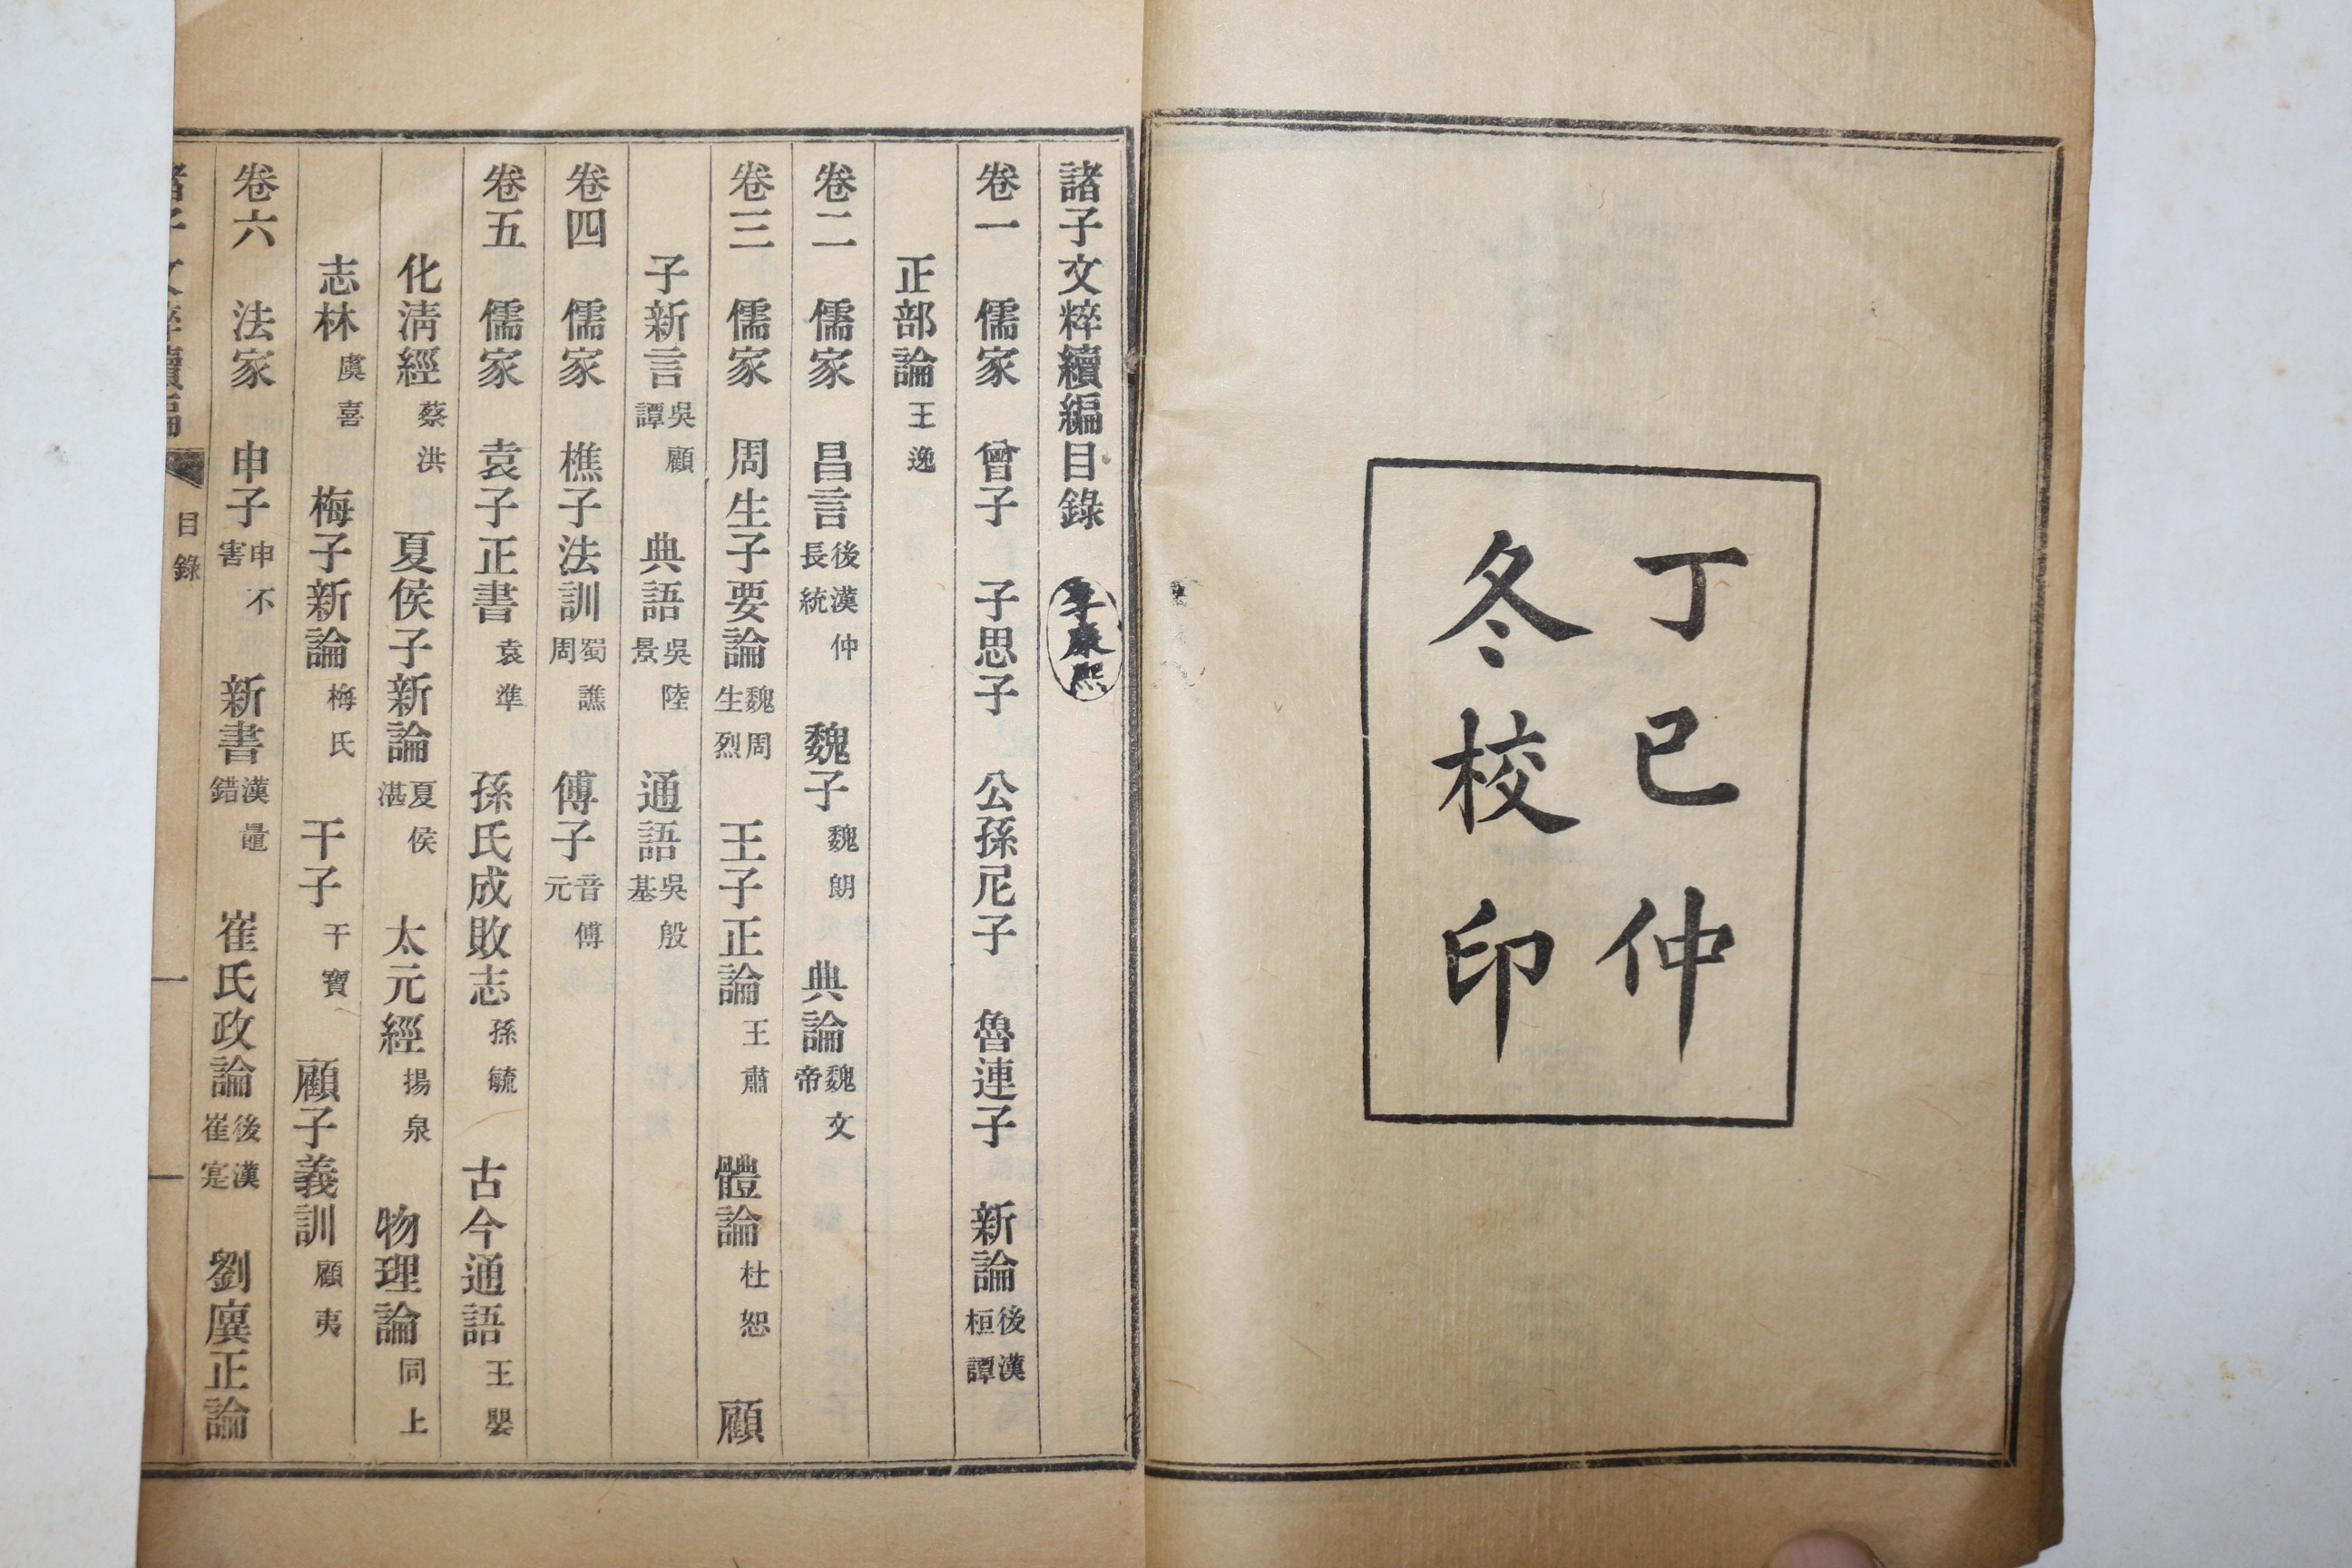 丁巳仲
冬校印
諸子文粹續編目錄
李康熙
卷一 儒家 曾子 子思子 公孫尼子 魯連子 新論 後漢桓譚
正部論 王逸
卷二 儒家 昌言 後漢仲長統 魏子 魏朗 典論 魏文帝
卷三 儒家 周生子要論 魏周生烈 王子正論 王肅 體論 杜恕 顧
子新言 吳顧譚 典語 吳陸景 通語 吳殷基
卷四 儒家 樵子法訓 蜀譙周 傅子 音傅元
卷五 儒家 袁子正書 袁準 孫氏成敗志 孫毓 古今通語 王嬰
化淸經 蔡洪 夏侯子新論 夏侯湛 太元經 揚泉 物理論 同上
志林 虞喜 梅子新論 梅氏 干子 干寶 顧子義訓 顧夷
卷六 法家 申子 申不害 新書 漢鼂錯 崔氏政論 後漢崔寔 劉廙正論
諸子文粹續編
目錄
一